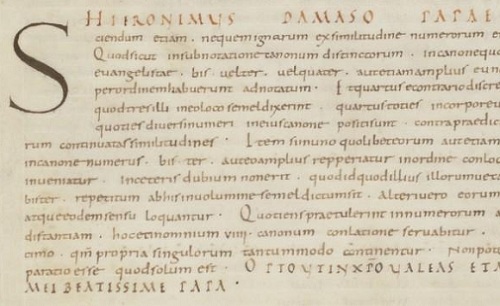 HIERONIMUS DAMASO PAPAE
Sciendum etiam. nequem ignarum ex similitudine numerorum et
Quod sicut in subnotatione canonum distinctorum. in canone quo
euangelistae. bis. uel ter. uel quater. aut etiam amplius eun
per ordinem habuerunt adnotatum. Et quartus econtrario discre
quod tres illi in eo loco semel dixerint. quartus toties incorpore
quoties diuersi numeri in eius canone positi sunt. contra praedic
rum continuatas similitudines. Item si in uno quolibet eorum aut etiam
in canone numerus. bis. ter. aut eo amplius repperiatur in ordine conlo
inueniatur. In ceteris dubium non erit. quod id quod illius illorum uet
bis ter. repetitum ab his in uolumine semel dictum sit. Alter uero eorum
atque eodem sensu loquantur. Quotiens praetulerint in numerorum a
distantiam. hoc et in omnium VIIII. canonum conlatione seruabitur.
cimo. qm propria singulorum tantummodo continentur. Non pote
paratio esse quod solum est. OPTO UT IN XPO UALEAS ET
MEI BEATISSIME PAPA.